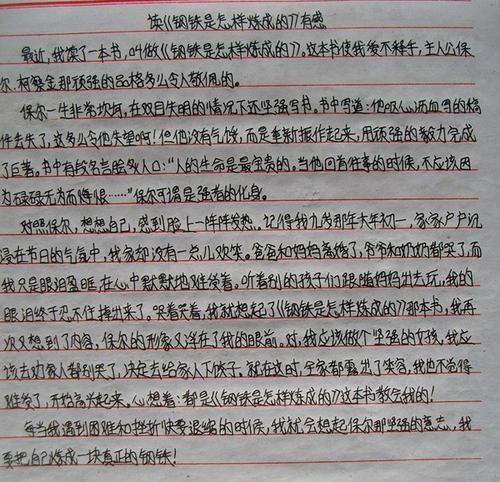 读《钢铁是怎样炼成的》有感
最近,我读了一本书,叫做《钢铁是怎样炼成的》。这本书使我爱不释手,主人公保
尔.柯察金那顽强的品格多么令人敬佩的。
保尔一生非常坎坷,在双目失明的情况下还坚强写书。书中写道:他呕心沥血写的稿
件丢失了,这多么令他失望啊!但他没有气馁,而是重新振作起来,用顽强的毅力完成
了巨著。书中有段名言脍炙人口:“人的生命是最宝贵的。当他回首往事的时候,不应该因
为碌碌无为而悔恨……”保尔可谓是强者的化身。
对照保尔,想想自己,感到脸上一阵阵发热。记得我九岁那年大年初一,家家户户沉
浸在节日的气氛中,我家却没有一点儿欢笑。爸爸和妈妈离婚了,爷爷和奶奶都哭了,而
我只是眼泪盈眶在心中默默地难受着。听着别的孩子们跟随妈妈出去玩,我的
眼泪终于忍不住掉出来了。哭着哭着,我就想起了《钢铁是怎样炼成的》那本书,我再
次又想到了内容,保尔的形象又浮在了我的眼前。对,我应该做个坚强的女孩,我应
该去劝家人都别哭了,决定去给家人下饺子。就在这时,全家都露出了笑容,我也不觉得
难受了,开始高兴起来。心想着:都是《钢铁是怎样炼成的》这本书教会我的!
每当我遇到困难和挫折快要退缩的时候,我就会想起保尔那坚强的意志,我
要把自己炼成一块真正的钢铁!